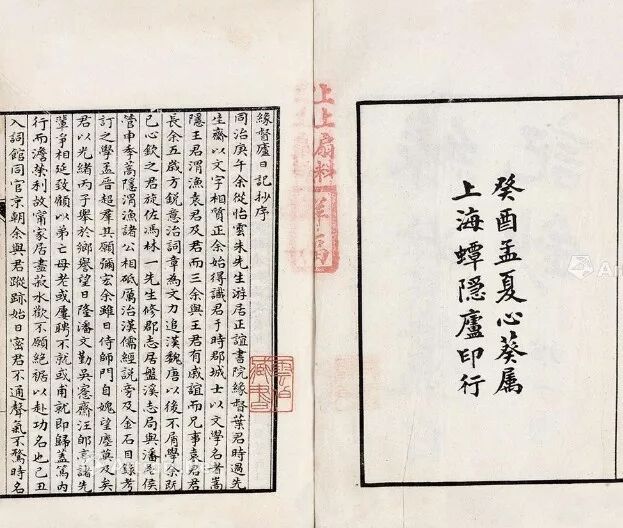 癸酉孟夏心葵属
上海蟫隱廬印行
上上扇料
緣督廬日記抄序
同治庚午余從怡雲朱先生游居正誼書院緣督葉君時過先
生齋以文字相質正余始得識君于時郡城士以文學名者嵩
隱王君渭漁袁君及君而三余與王君有戚誼而兄事袁君
長余五歲方銳意治詞章為文力追漢魏唐以後不屑學余既
已心欽之君旋佐馮林一先生修郡志居盤溪志局與潘侯
管申季嵩隱渭漁諸公相砥厲治漢儒經說旁及金石目錄考
訂之學孟晉超羣其願彌宏余雖日侍師門自媿望塵莫及矣
君以光緒丙子舉於鄉譽望日隆潘文勤吳愙齋汪郋亭諸先
輩爭相延致顧以弟亡母老或聘不就或甫就即歸蓋篤內
行而澹榮利故甯家居盡菽水歡不願絕裾以赴功名也己丑
入詞館同官京朝余與君蹤跡始日密君不通聲氣不騖時名